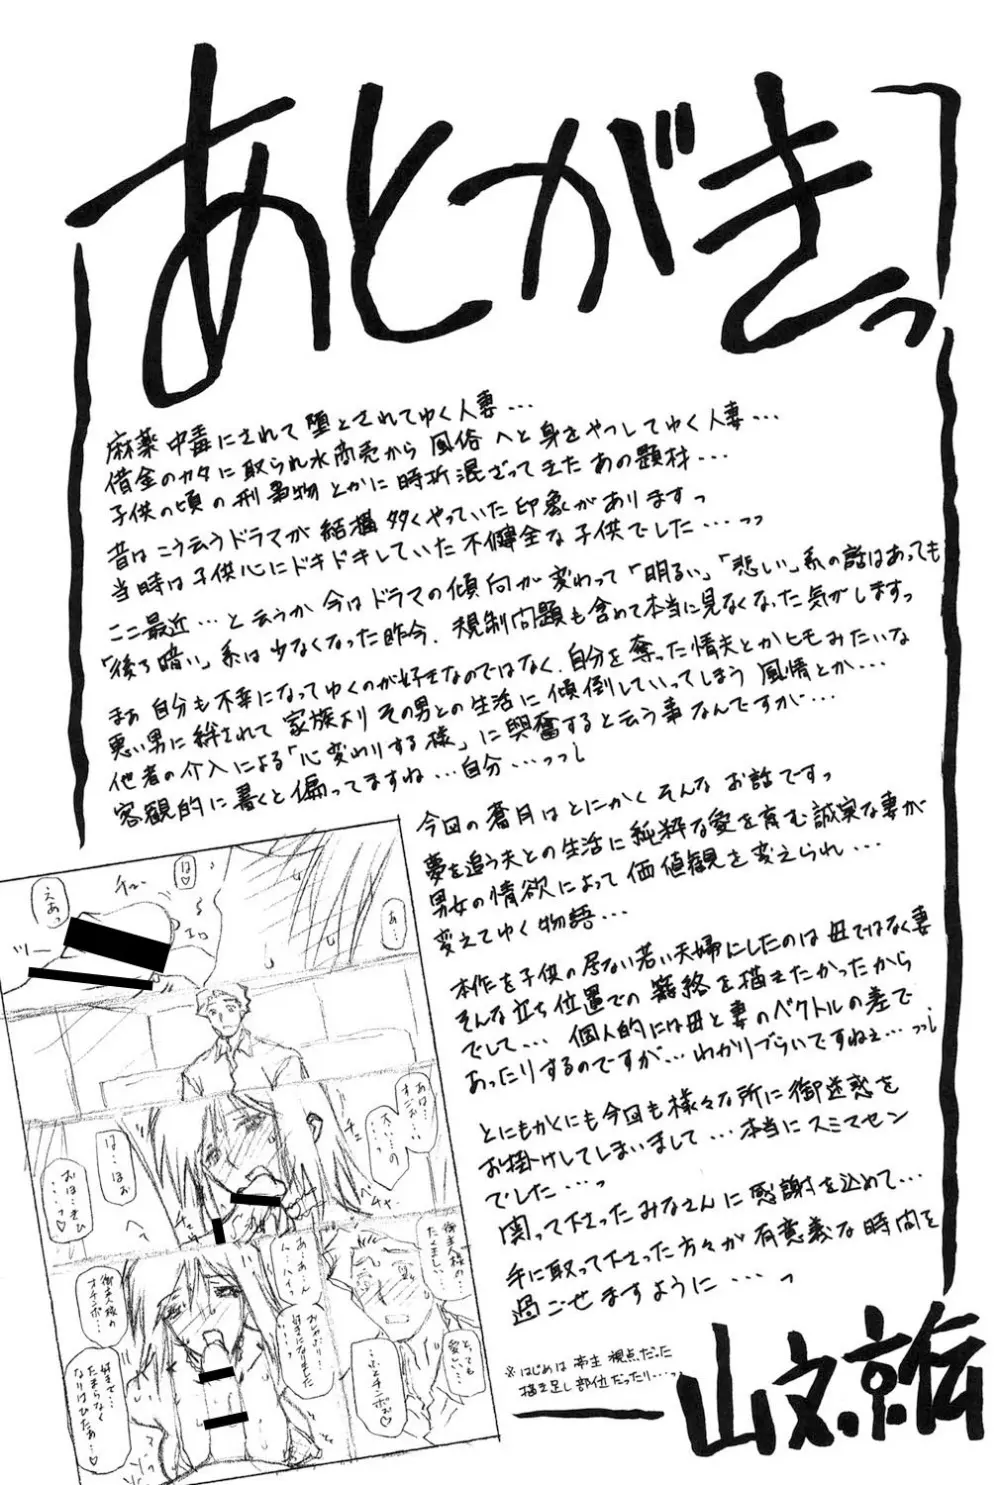 あとがきっ
麻薬中毒にされて堕とされてゆく人妻…
借金のカタに取られ水商売から風俗へと身をやつしてゆく人妻…
子供の頃の刑事物とかに時折混ざってきたあの題材…
昔はこう云うドラマが結構多くやっていた印象がありますっ
当時は子供心にドキドキしていた不健全な子供でした…っっ
ここ最近…と云うか今はドラマの傾向が変わって「明るい」「悲しい」系の話はあっても
「後ろ暗い」系は少なくなった昨今、規制問題も含めて本当に見なくなった気がしますっ
まぁ自分も不幸になってゆくのが好きなのではなく、自分を奪った情夫とかヒモみたいな
悪い男に絆されて家族よりその男との生活に傾倒していってしまう風情とか…
他者の介入による「心変わりする様」に興奮すると云う事なんですが…
客観的に書くと偏ってますね…自分…っっ
今回の蒼月はとにかくそんなお話ですっ
夢を追う夫との生活に純粋な愛を育む誠実な妻が
男女の情欲によって価値観を変えられ…
変えてゆく物語…
本作を子供の居ない若い夫婦にしたのは母ではなく妻
そんな立ち位置での籠絡を描きたかったから
でして… 個人的には母と妻のベクトルの差で
あったりするのですが…わかりづらいですねぇ…っっ
とにもかくにも今回も様々な所に御迷惑を
お掛けしてしまいまして…本当にスミマセン
でした…っ
関って下さったみなさんに感謝を込めて…
手に取って下さった方々が有意義な時間を
過ごせますように…っ
※はじめは亭主視点だった
描き足し部位だったり…っ
山文京伝